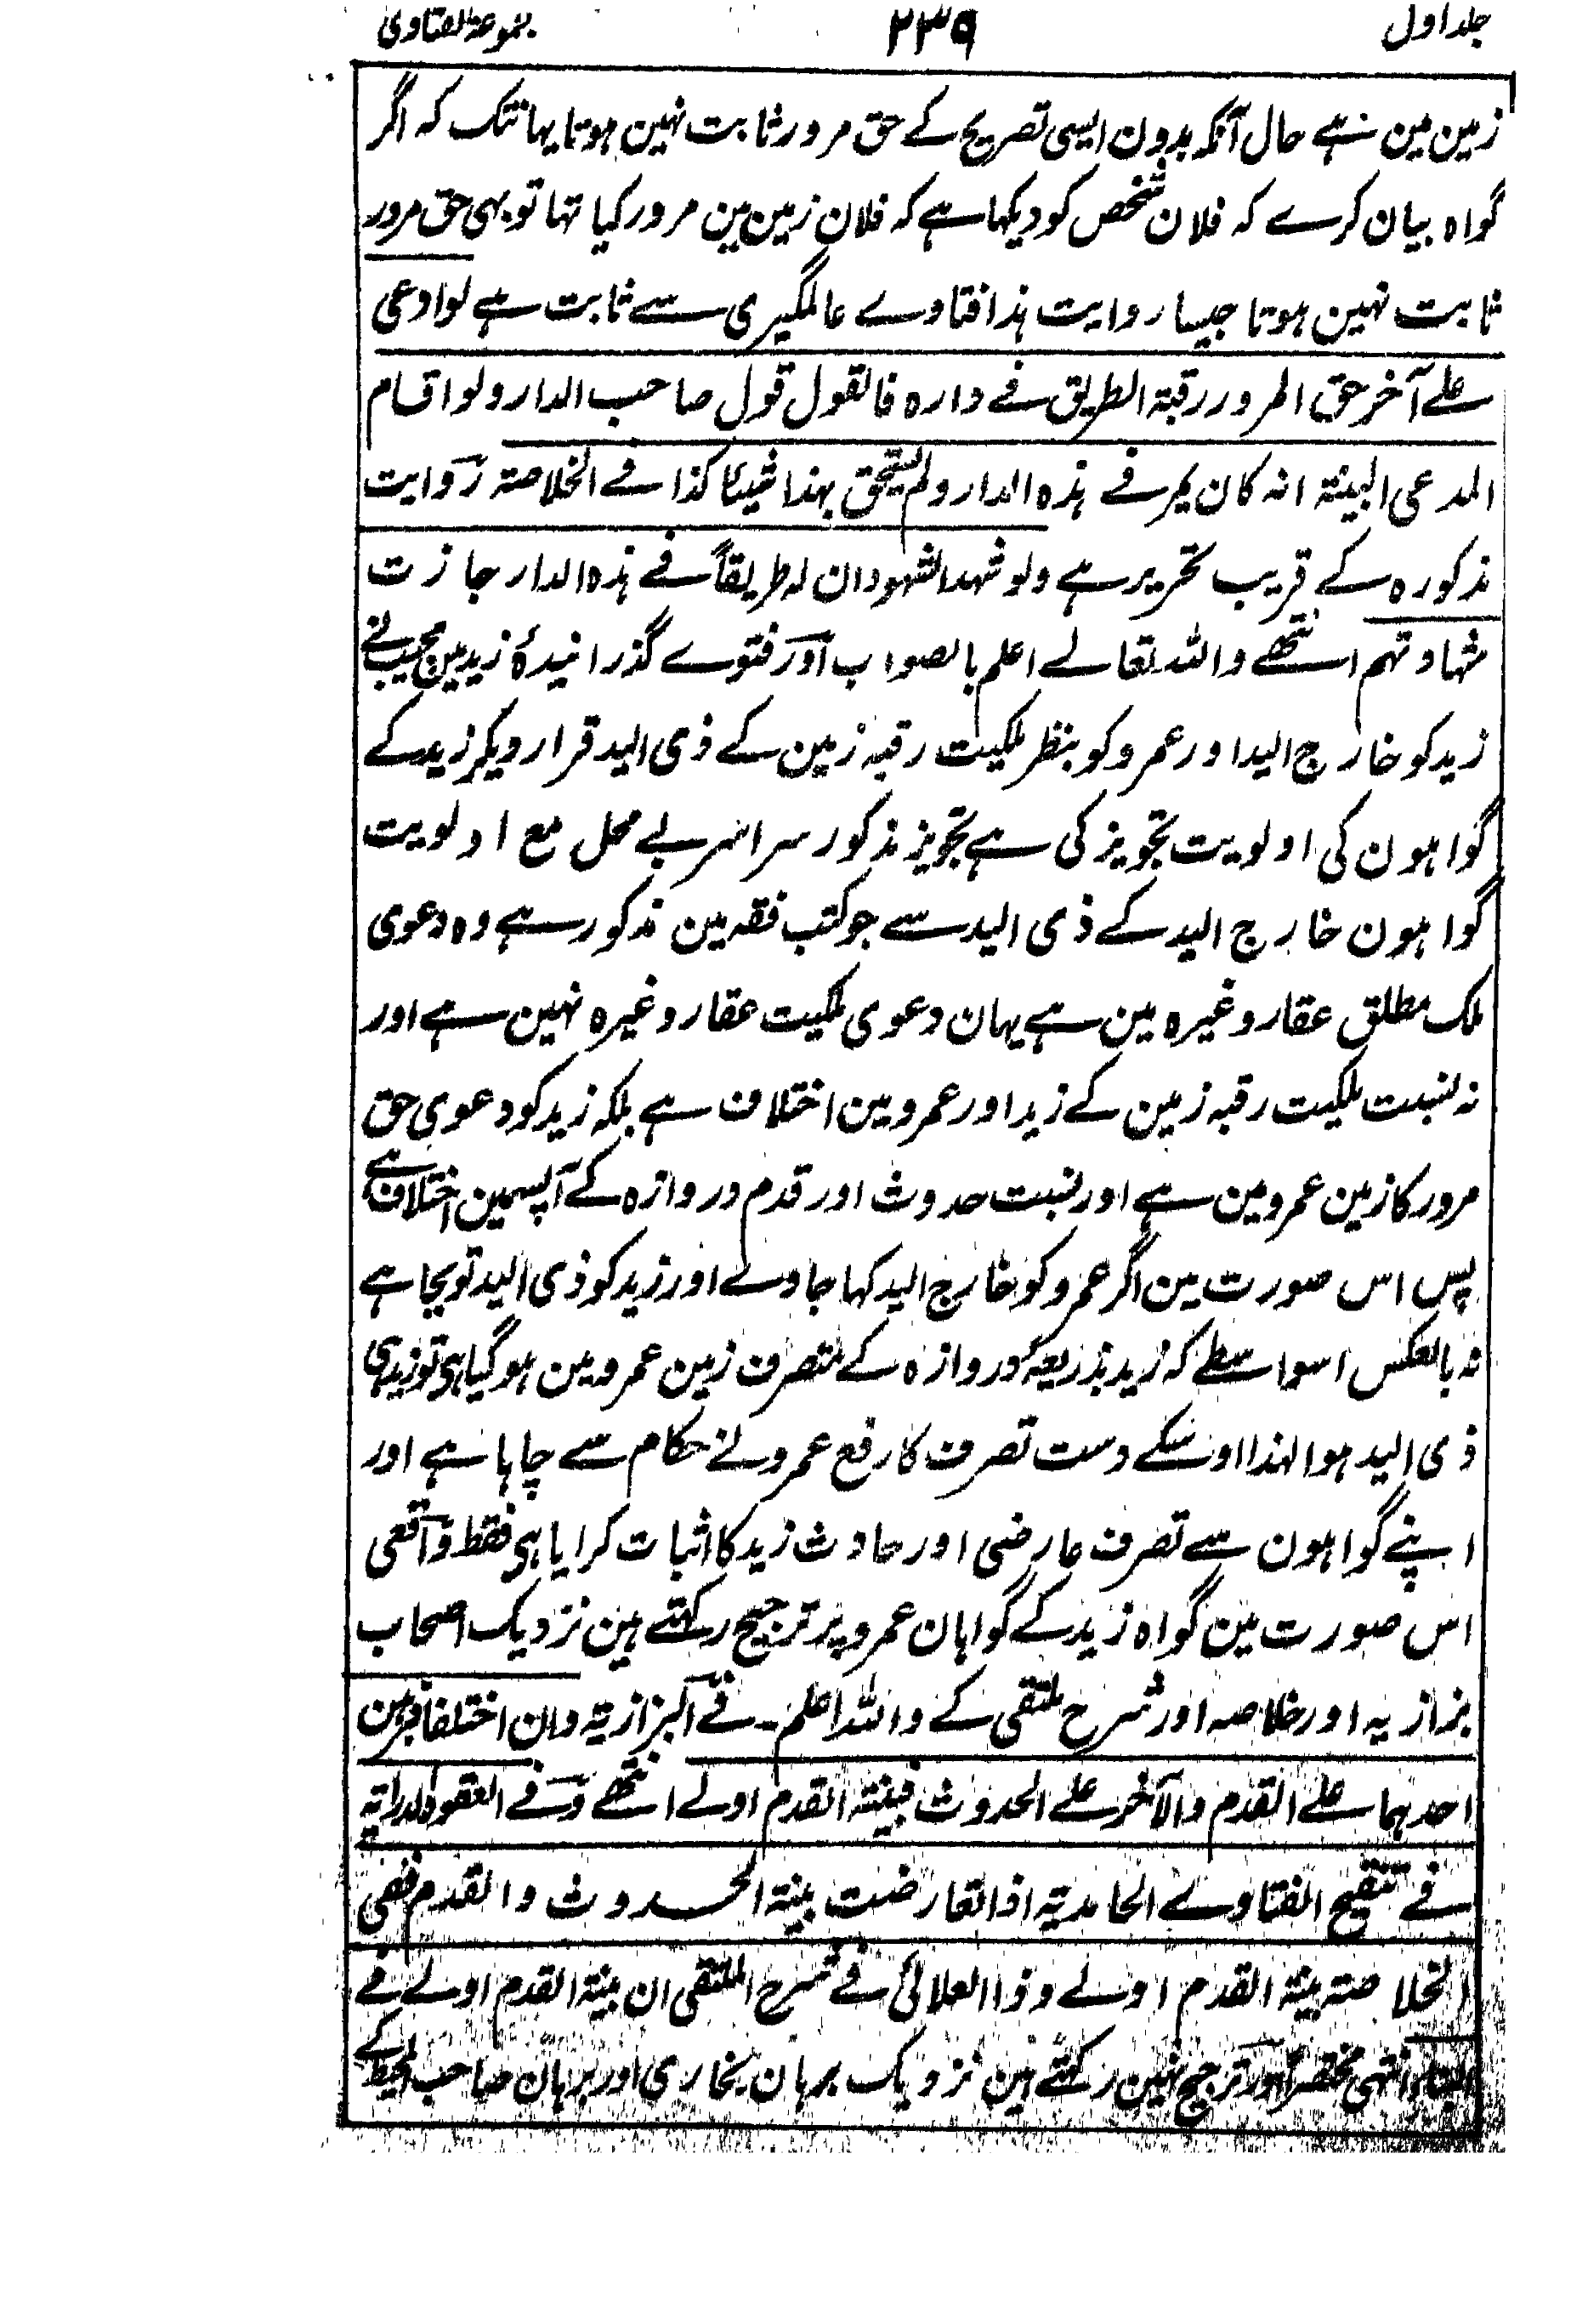 جلد اول ۲۳۹ مجموعة الفتاوى
زمین مین ہے حال آنکہ بدون ایسی تصریح کے حق مرور ثابت نہین ہوتا یہانتک کہ اگر
گواہ بیان کرے کہ فلان شخص کو دیکہا ہے کہ فلان زمین مین مرور کیا تہا تو بہی حق مرور
ثابت نہین ہوتا جیسا روایت ہذا فتاوے عالمگیری سے ثابت ہے لو ادعی
علے آخر حق المرور رقبۃ الطریق فے دارہ فالقول قول صاحب الدار ولو اقام
المدعی البینۃ انہ کان یمر فے ہذہ الدار ولم یستحق بہذا شیئا کذا فے الخلاصۃ روایت
مذکورہ کے قریب تحریر ہے ولو شہد الشہود ان لہ طریقاً فے ہذہ الدار جازت
شہادتہم انتہے واللہ تعالے اعلم بالصواب اور فتوے گذرانیدۂ زید مین مجیب نے
زید کو خارج الید اور عمرو کو بنظر ملکیت رقبہ زمین کے ذی الید قرار دیکر زید کے
گواہون کی اولویت تجویز کی ہے تجویز مذکور سراسر بے محل مع اولویت
گواہون خارج الید کے ذی الید سے جو کتب فقہ مین مذکور ہے وہ دعوی
ملک مطلق عقار وغیرہ مین ہے یہان دعوی ملکیت عقار وغیرہ نہین ہے اور
نہ نسبت ملکیت رقبہ زمین کے زید اور عمرو مین اختلاف ہے بلکہ زید کو دعوی حق
مرور کا زمین عمرو مین ہے اور نسبت حدوث اور قدم دروازہ کے آپسمین اختلاف ہے
پس اس صورت مین اگر عمرو کو خارج الید کہا جاوے اور زید کو ذی الید تو بجا ہے
نہ بالعکس اسواسطے کہ زید بذریعہ دروازہ کے متصرف زمین عمرو مین ہوگیا ہی تو زید ہی
ذی الید ہوا لہذا اوسکے دست تصرف کا رفع عمرو نے حکام سے چاہا ہے اور
اپنے گواہون سے تصرف عارضی اور حادث زید کا اثبات کرایا ہی فقط واقعی
اس صورت مین گواہ زید کے گواہان عمرو پر ترجیح رکہتے ہین نزدیک اصحاب
بزازیہ اور خلاصہ اور شرح ملتقی کے واللہ اعلم ۔ فے البزازیۃ وان اختلفا فبرہن
احدہما علے القدم والآخر علے الحدوث فبینۃ القدم اولے انتہے وفے العقود الدرایۃ
فے تنقیح الفتاوے الحامدیۃ اذا تعارضت بینۃ الحدوث والقدم ففی
الخلاصۃ بینۃ القدم اولے وذا العلائی فے شرح الملتقی ان بینۃ القدم اولے فے
البناء انتہی مختصراً اور ترجیح نہین رکہتے ہین نزدیک برہان بخاری اور برہان صاحب المحیط کے